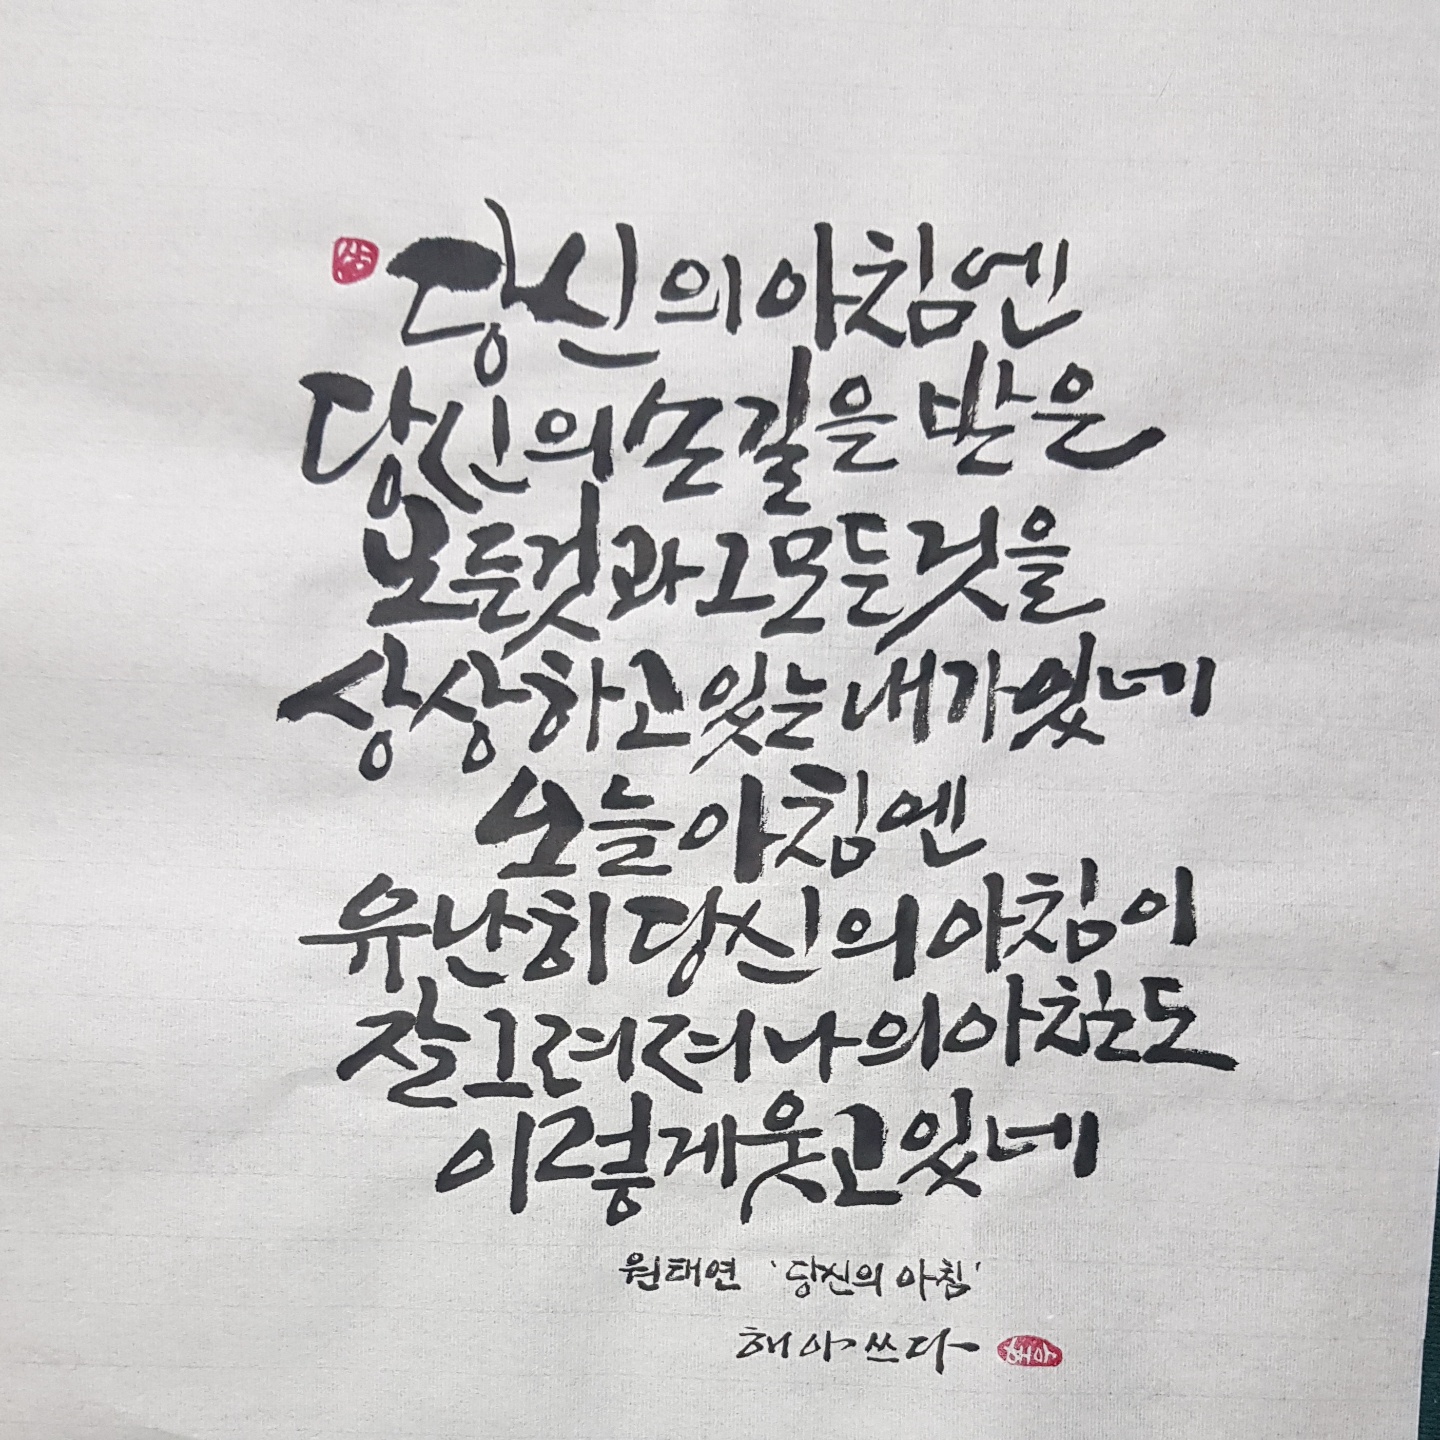 당신의 아침엔
당신의 손길을 받은
모든것과 그 모든것을
상상하고 있는 내가 있네
오늘 아침엔
유난히 당신의 아침이
잘 그려져 나의 아침도
이렇게 웃고 있네
원태연 '당신의 아침'
해아 쓰다 해아